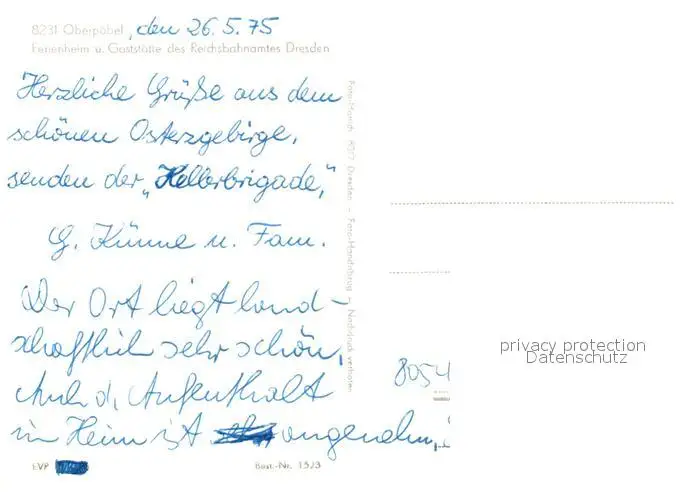 8231 Oberpöbel, den 26.5.75
Ferienheim u. Gaststätte des Reichsbahnamtes Dresden
Herzliche Grüße aus dem
schönen Osterzgebirge,
senden der „Kellerbrigade,"
G. Künne u. Fam.
Der Ort liegt land-
schaftlich sehr schön,
Auch d. Aufenthalt
im Heim ist angenehm,
EVP
Best.-Nr. 1373
Nachdruck verboten
8054
privacy protection
Datenschutz